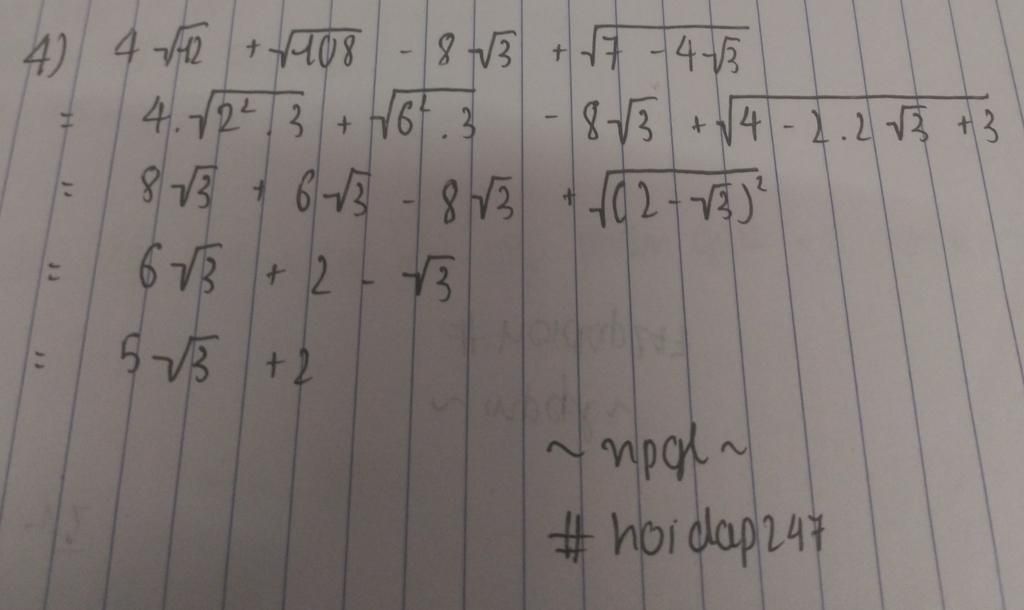 4) 4√12 + √108 - 8√3 + √7 - 4√3
= 4.√2² . 3 + √6² . 3 - 8√3 + √4 - 2 . 2√3 + 3
= 8√3 + 6√3 - 8√3 + √(2 - √3)²
= 6√3 + 2 - √3
= 5√3 + 2
~ npgl ~
# hoidap247